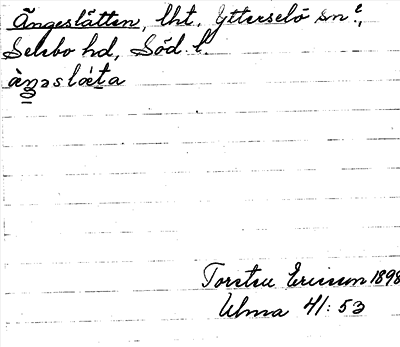 Ängeslätten, lht. Ytterselö sn,
Selebo hd, Söd. l.
Torsten Ericsson 1898
Ulma 41:53